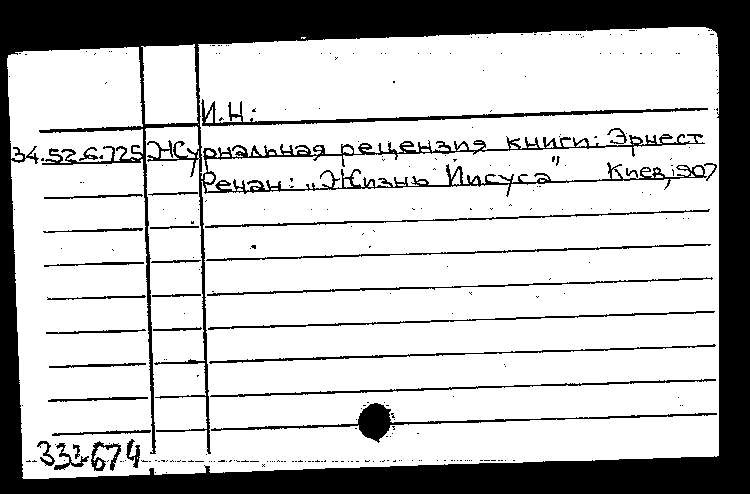 И.Н:
34.52.6.725 Журнальная рецензия книги: Эрнест
Ренан: „Жизнь Иисуса" Киев, 1907
333674